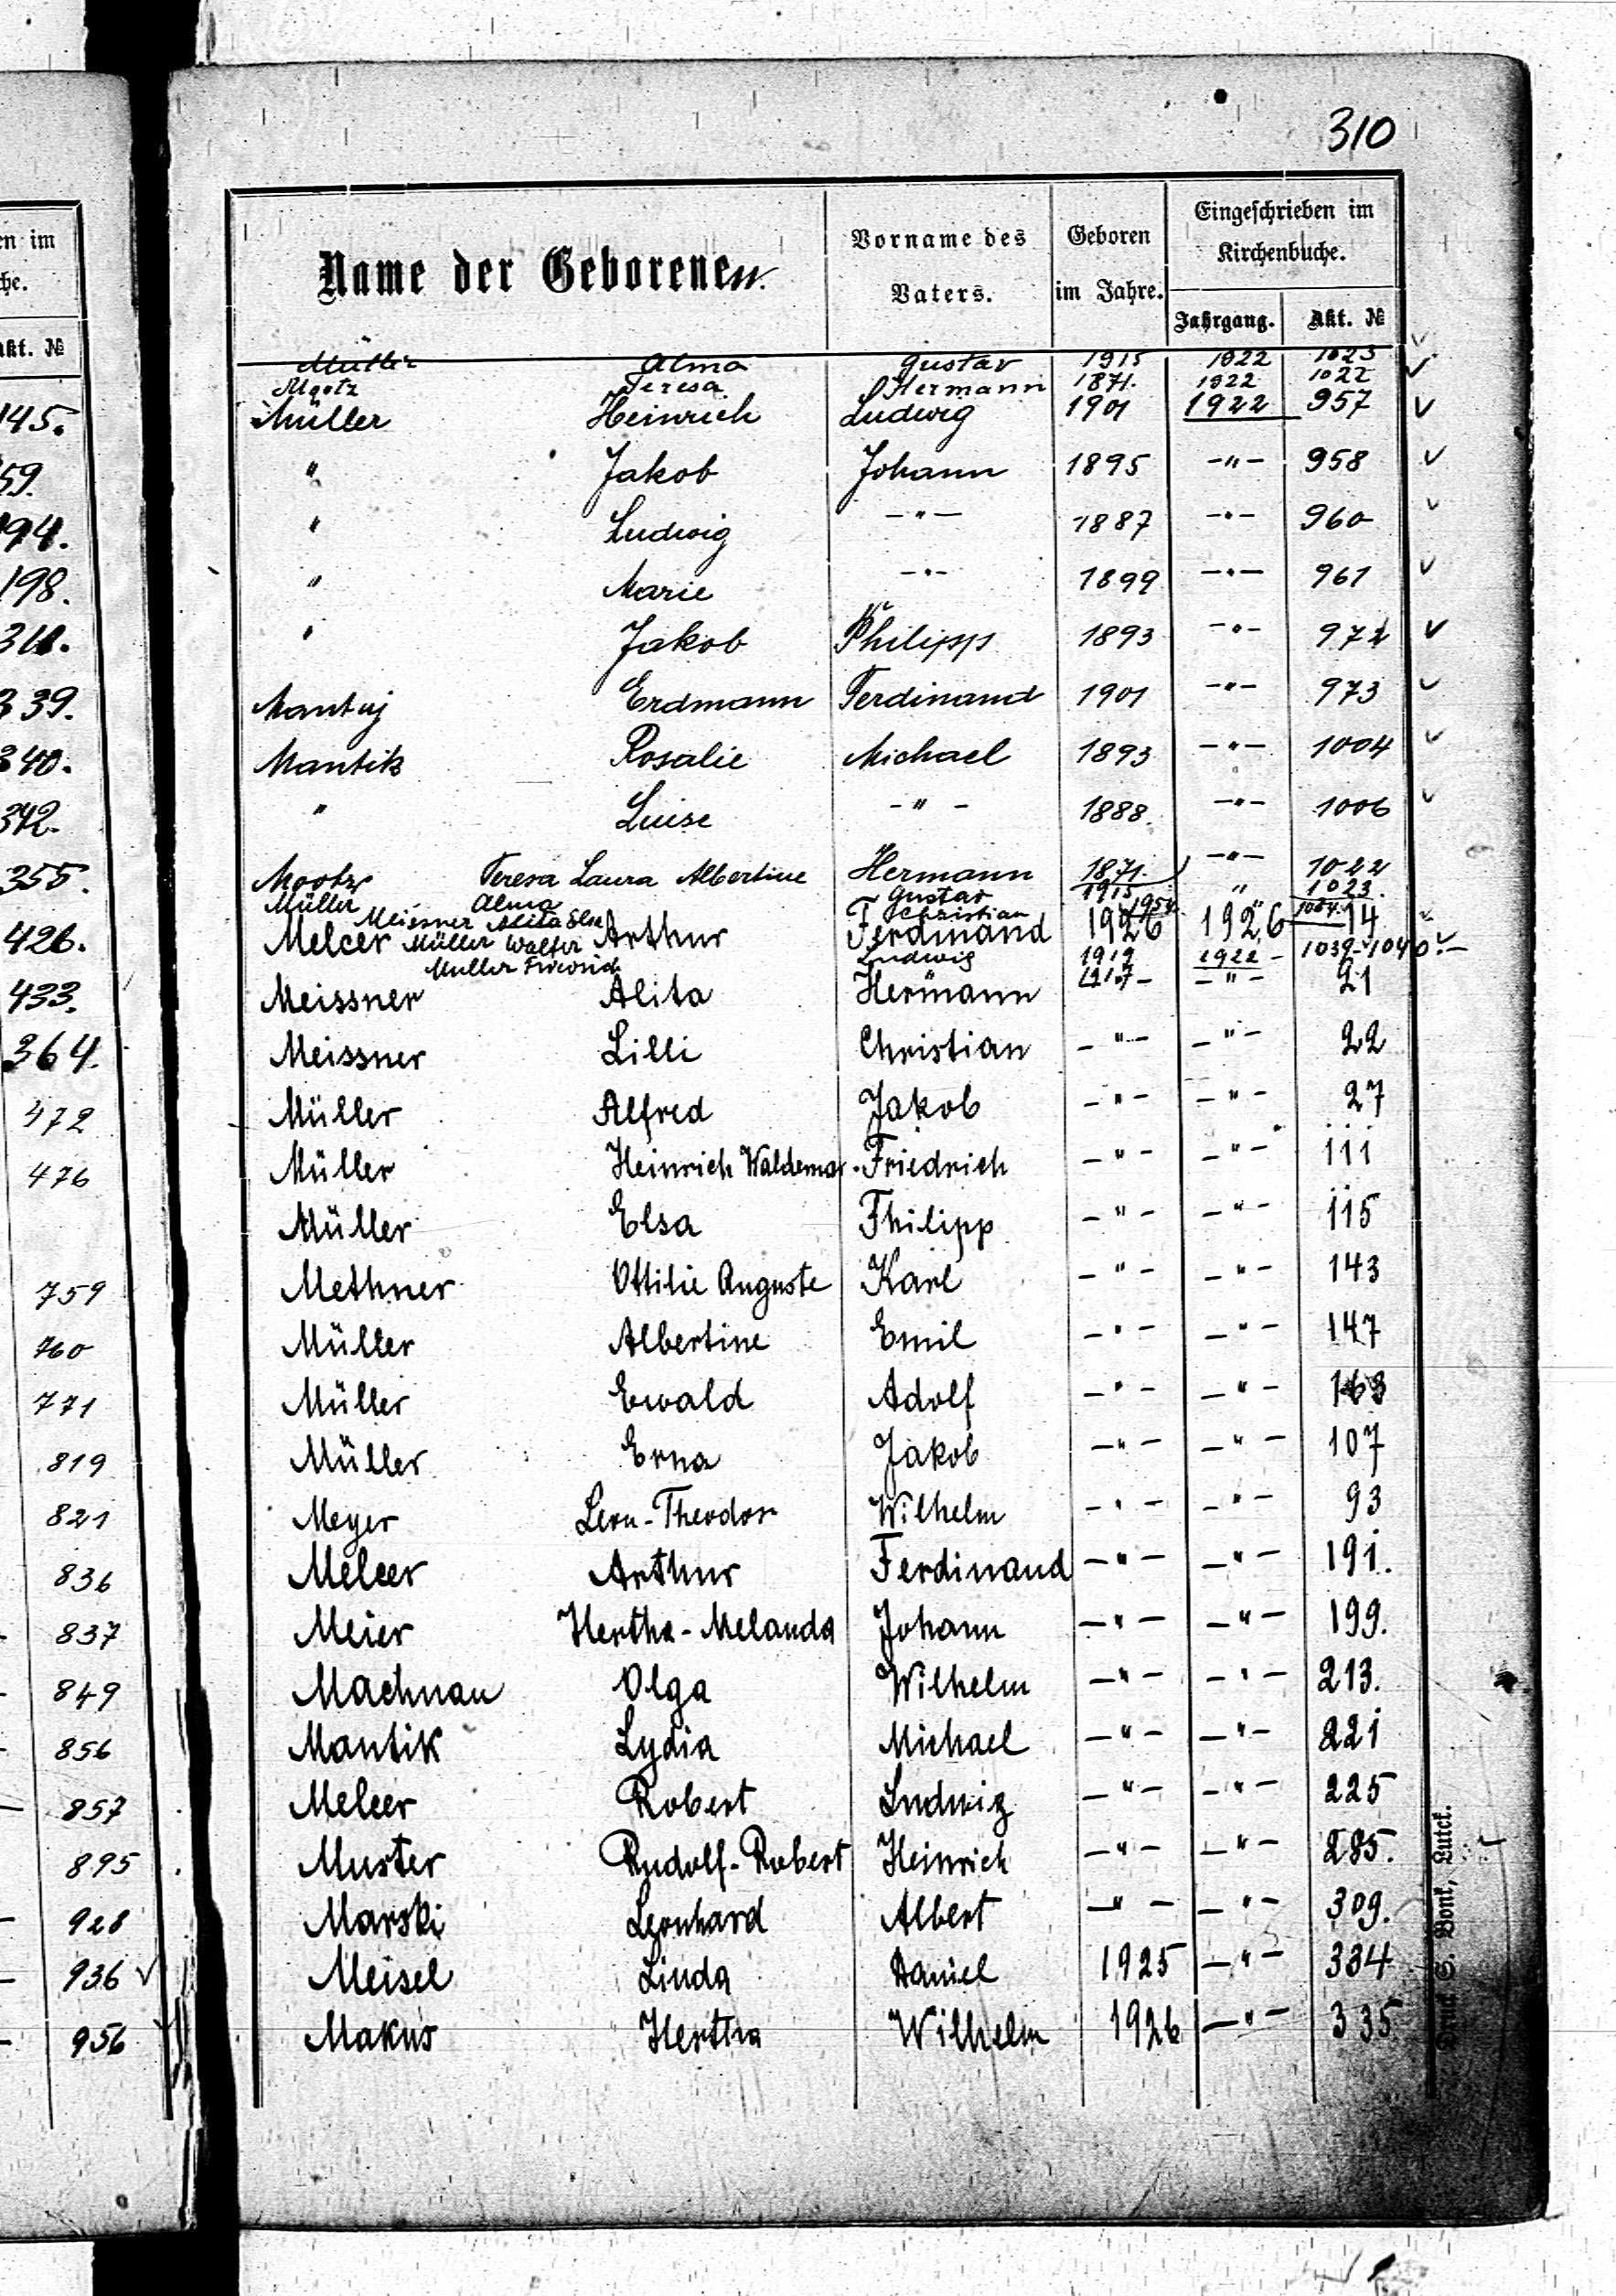 310
en im
che.
Akt. №
145.
59.
194.
198.
311.
339.
340.
342.
355.
426.
433.
364.
472
476
759
760
771
819
821
836
837
849
856
857
895
928
936 ✓
956
Name der Geborenen.
Vorname des Vaters.
Geboren im Jahre.
Eingeschrieben im Kirchenbuche.
Jahrgang. Akt. №
Müller Alma Gustav 1915 1922 1023 ✓
Mootz Teresa Hermann 1871. 1922 1022 ✓
Müller Heinrich Ludwig 1901 1922 957 ✓
" Jakob Johann 1895 -"- 958 ✓
" Ludwig -"- 1887 -"- 960 ✓
" Marie -"- 1899 -"- 961 ✓
" Jakob Philipp 1893 -"- 972 ✓
Mantuj Erdmann Ferdinand 1901 -"- 973 ✓
Mantik Rosalie Michael 1893 -"- 1004 ✓
" Luise -"- 1888. -"- 1006 ✓
Mootz Teresa Laura Albertine Hermann 1871. -"- 1022
Müller Alma Gustav 1915 " 1023.
Meissner Alita Else Christian
Melcer Arthur Ferdinand 1926 1926 14
Müller Walter Ludwig 1919 1922 - 1039-1040.-
Müller Friedrich 1917 -
Meissner Alita Hermann -"- 21
Meissner Lilli Christian -"- -"- 22
Müller Alfred Jakob -"- -"- 27
Müller Heinrich Waldemar. Friedrich -"- -"- 111
Müller Elsa Philipp -"- -"- 115
Methner Ottilie Auguste Karl -"- -"- 143
Müller Albertine Emil -"- -"- 147
Müller Ewald Adolf -"- -"- 163
Müller Erna Jakob -"- -"- 107
Meyer Leon-Theodor Wilhelm -"- -"- 93
Melcer Arthur Ferdinand -"- -"- 191.
Meier Hertha-Melanda Johann -"- -"- 199.
Machnau Olga Wilhelm -"- -"- 213.
Mantik Lydia Michael -"- -"- 221
Melcer Robert Ludwig -"- -"- 225
Muster Rudolf-Robert Heinrich -"- -"- 285.
Marski Leonhard Albert -"- -"- 309.
Meisel Linda Daniel 1925 -"- 334
Makus Hertha Wilhelm 1926 -"- 335
Druck S. Bonk, Luck.